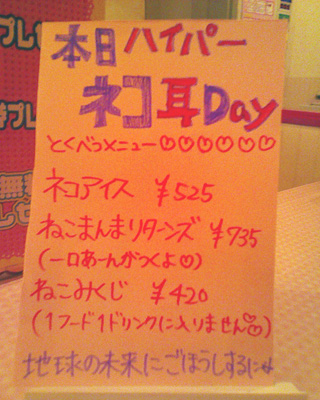 本日ハイパー
ネコ耳Day
とくべつメニュー♡♡♡♡♡♡
ネコアイス ¥525
ねこまんまリターンズ ¥735
(一口あーんがつくよ♡)
ねこみくじ ¥420
(1フード1ドリンクに入りません)
地球の未来にごほうしするにゃ